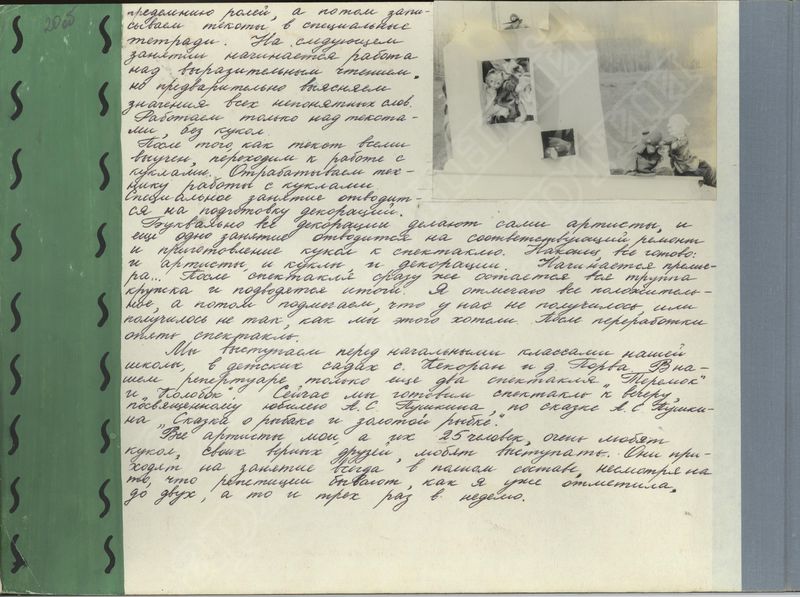 20 об
пределению ролей, а потом запи-
сываем тексты в специальные
тетради. На следующем
занятии начинается работа
над выразительным чтением,
но предварительно выясняем
значения всех непонятных слов.
Работаем только над текста-
ми, без кукол.
После того, как текст всеми
выучен, переходим к работе с
куклами. Отрабатываем тех-
нику работы с куклами.
Специальное занятие отводит-
ся на подготовку декораций.
Буквально все декорации делают сами артисты, и
еще одно занятие отводится на соответствующий ремонт
и приготовление кукол к спектаклю. Наконец, все готово:
и артисты, и куклы, и декорации. Начинается премье-
ра... После спектакля сразу же остается вся труппа
кружка и подводятся итоги. Я отмечаю все положитель-
ное, а потом подмечаем, что у нас не получилось или
получилось не так, как мы этого хотели. После переработки
опять спектакль.
Мы выступаем перед начальными классами нашей
школы, в детских садах с. Пекоран и д. Порва. В на-
шем репертуаре только еще два спектакля „Теремок"
и „Колобок". Сейчас мы готовим спектакль к вечеру,
посвященному юбилею А.С. Пушкина, по сказке А.С. Пушки-
на „Сказка о рыбаке и золотой рыбке".
Все артисты мои, а их 25 человек, очень любят
кукол, своих верных друзей, любят выступать. Они при-
ходят на занятие всегда в полном составе, несмотря на
то, что репетиции бывают, как я уже отметила,
до двух, а то и трех раз в неделю.